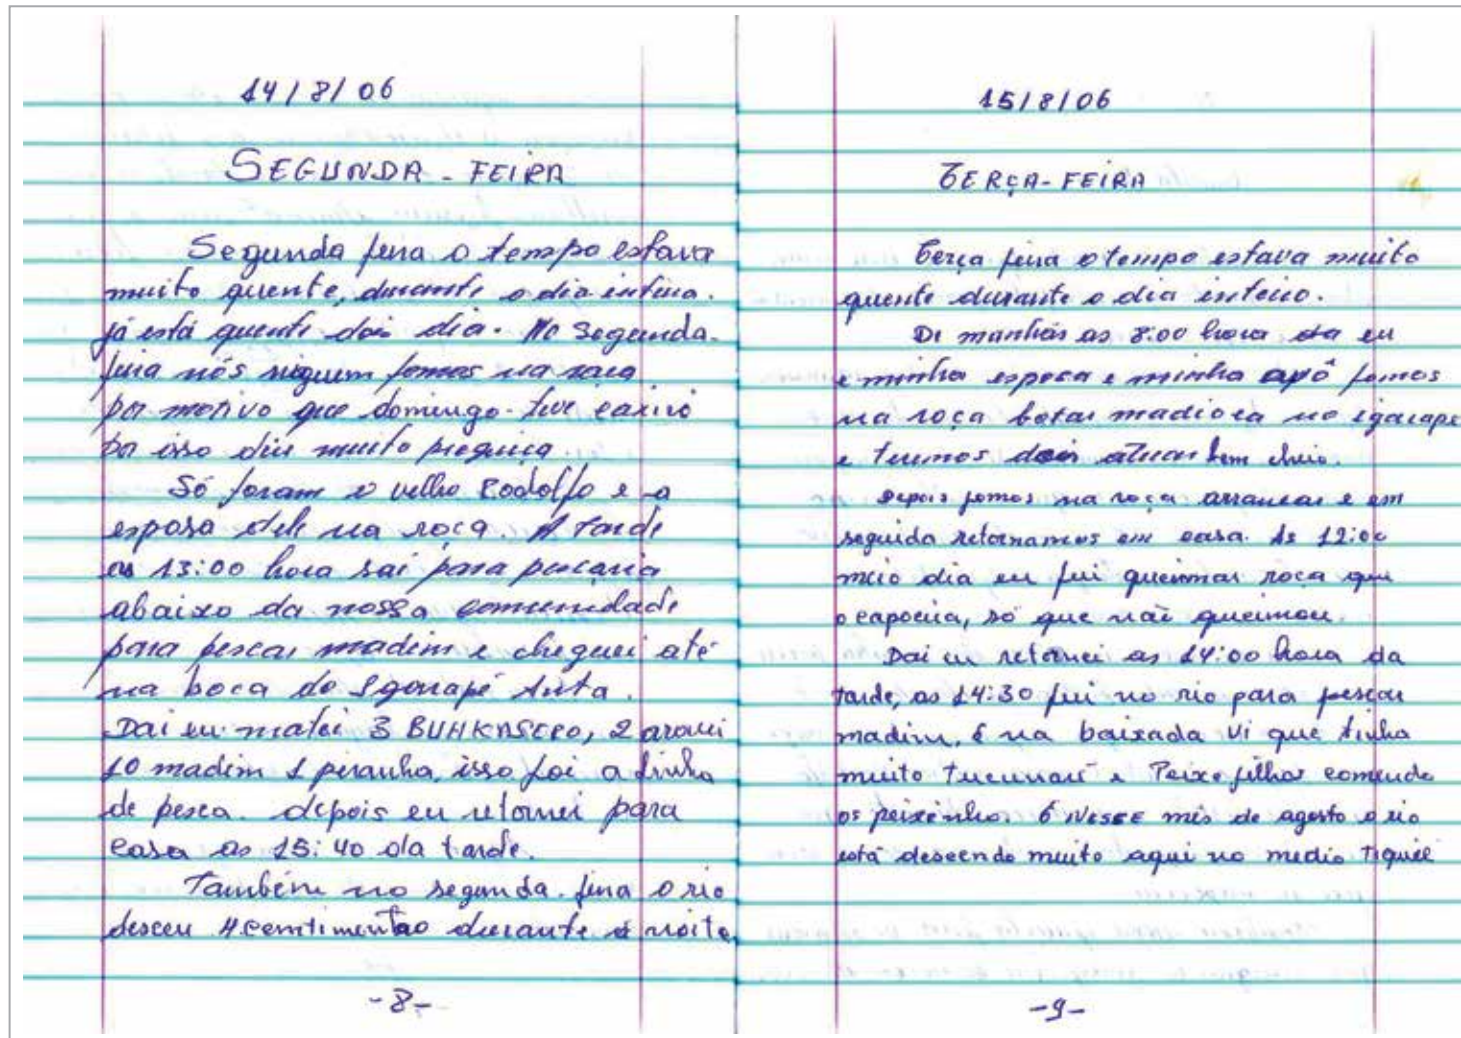 14/8/06
SEGUNDA - FEIRA
Segunda feira o tempo estava
muito quente, durante o dia inteiro.
já está quente dois dia. No Segunda.
feira nós niguem fomos na roça
por motivo que domingo. teve caxiri
por isso deu muito preguiça.
Só foram o velho Rodolfo e a
esposa dele na roça. A tarde
as 13:00 hora sai para pescaria
abaixo da nossa comunidade
para pescar madim e cheguei até
na boca do Igarapé Anta.
Dai eu matei 3 BUHKASERO, 2 aracu
10 madim 1 piranha, isso foi a linha
de pesca. depois eu retornei para
casa as 15:40 da tarde.
Também no segunda. feira o rio
desceu 4 centimentro durante a noite
-8-
15/8/06
TERÇA-FEIRA
Terça feira o tempo estava muito
quente durante o dia inteiro.
De manhãs as 8:00 hora da eu
e minha esposa e minha apô fomos
na roça botar madioca no igarape
e temos dois aturas bem cheio.
Depois fomos na roça arrancar e em
seguida retornamos em casa. As 12:00
meio dia eu fui queimar roça que
o capoeira, só que não queimou.
Dai eu retornei as 14:00 hora da
tarde, as 14:30 fui no rio para pescar
madim, é na baixada vi que tinha
muito Tucunaré e Peixe filhos comendo
os peixinhos. É NESSE mês de agosto o rio
está descendo muito aqui no medio Tiquié
-9-